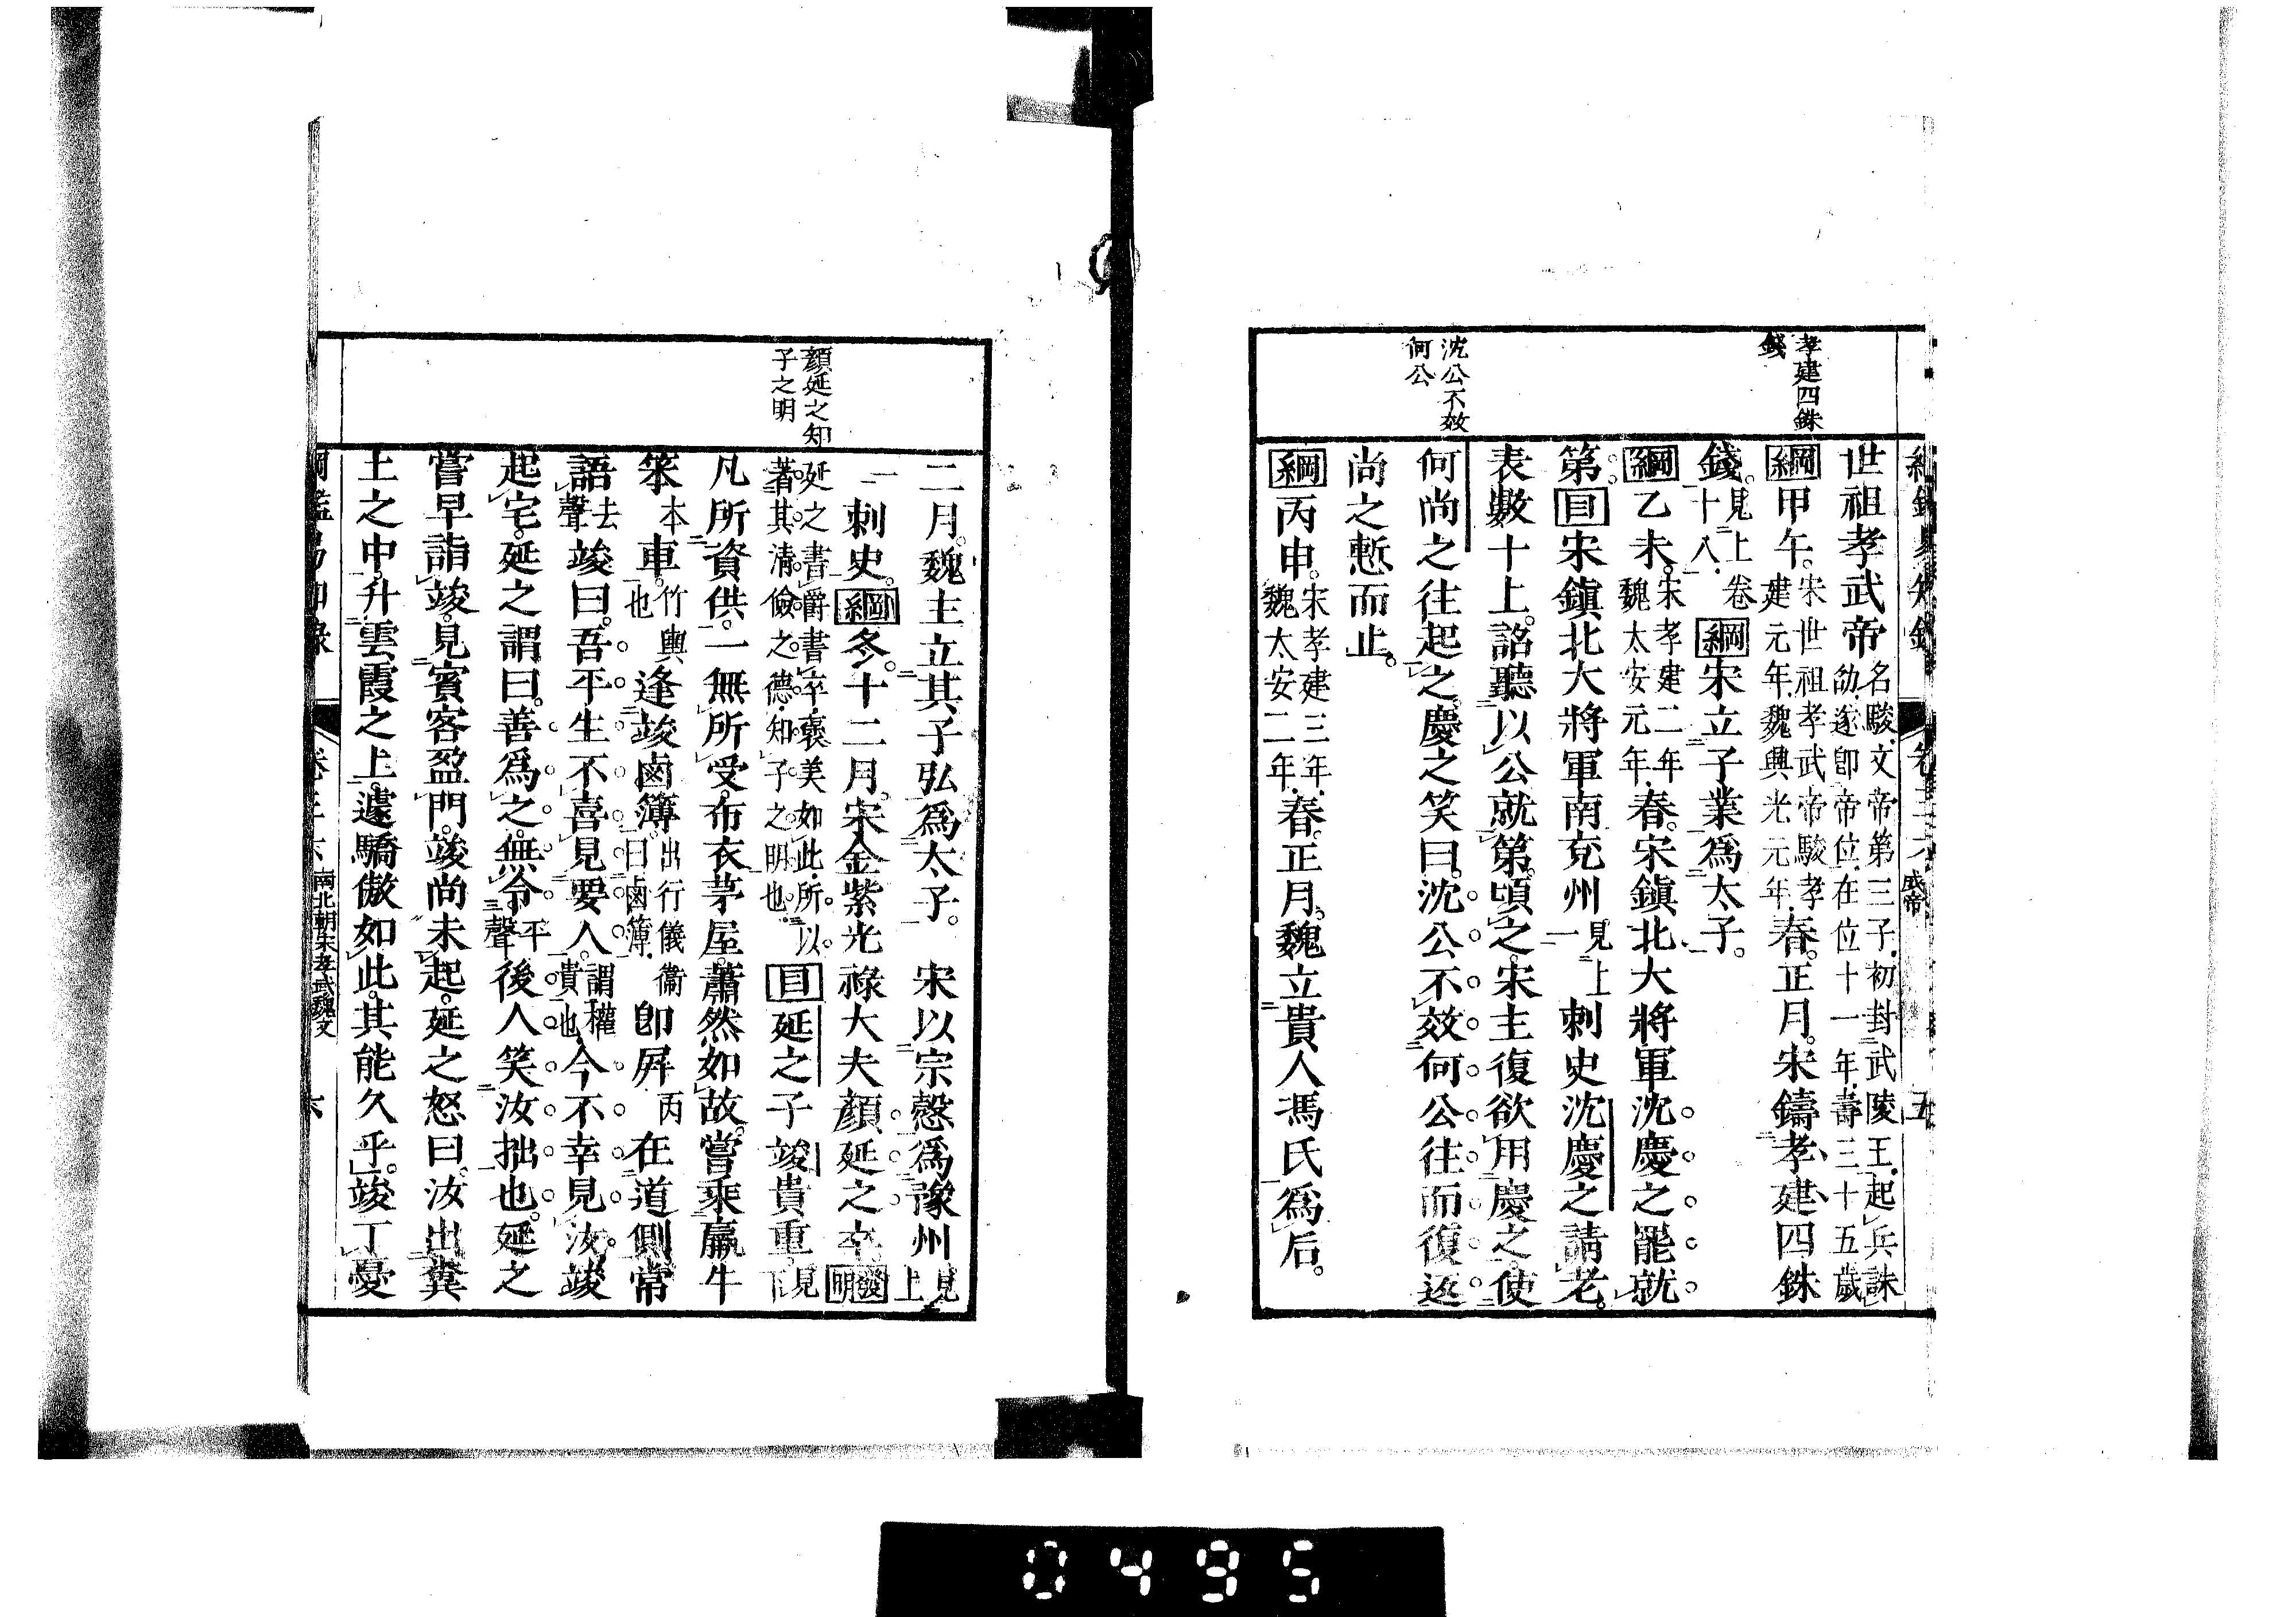 孝建四銖
錢
沈公不效
何公
世祖孝武帝 名駿文帝第三子初封武陵王起兵誅
劭遂卽帝位在位十一年壽三十五歲
綱甲午 宋世祖孝武帝駿孝
建元年魏興光元年 春。正月。宋鑄孝建四銖
錢。 見上卷
十八 綱宋立子業爲太子。
綱乙未 宋孝建二年
魏太安元年 春。宋鎮北大將軍沈慶之罷就
第。目宋鎮北大將軍南兗州 見上 刺史沈慶之請老。
表數十上。詔聽以公就第。頃之。宋主復欲用慶之。使
何尚之往起之。慶之笑曰。沈公不效何公往而復返
尚之慙而止。
綱丙申。 宋孝建三年
魏太安二年 春。正月。魏立貴人馮氏爲后。
五
顏延之知
子之明
二月。魏主立其子弘爲太子。 宋以宗慤爲豫州 見
上
刺史。綱冬。十二月。宋金紫光祿大夫顏延之卒 發
明
延之書爵書卒褒美如此所以
著其清儉之德知子之明也 目延之子竣貴重。 見
下
凡所資供。一無所受。布衣茅屋。蕭然如故。嘗乘羸牛
笨 本 車。 竹輿
也 逢竣鹵簿。 出行儀衞
曰鹵簿 卽屏 丙 在道側常
語 去
聲 竣曰。吾平生不喜見要人。 謂權
貴也 今不幸見汝。竣
起宅。延之謂曰。善爲之。無令 平
聲 後人笑汝拙也。延之
嘗早詣竣。見賓客盈門。竣尚未起。延之怒曰。汝出糞
土之中。升雲霞之上。遽驕傲如此。其能久乎。竣丁憂
南北朝宋孝武魏文
六
0495